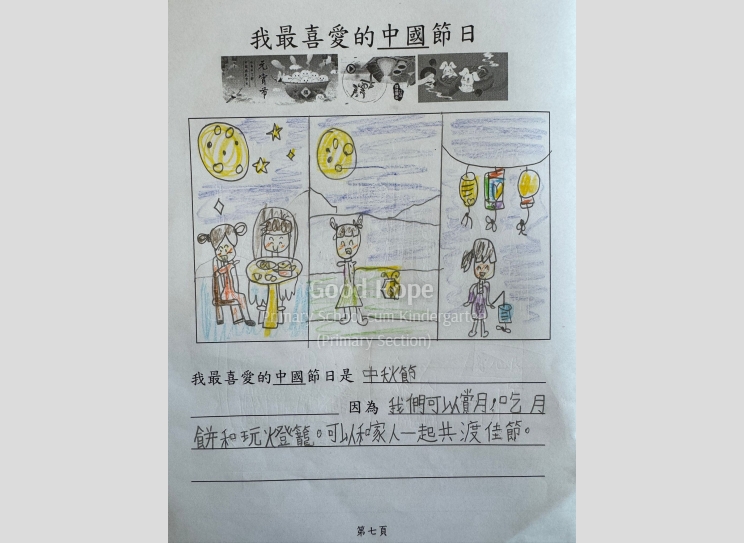 我最喜愛的中國節日
元宵節
Good Hope
Primary School cum Kindergarten
(Primary Section)
我最喜愛的中國節日是 中秋節
因為 我們可以賞月、吃月
餅和玩燈籠。可以和家人一起共渡佳節。
第七頁